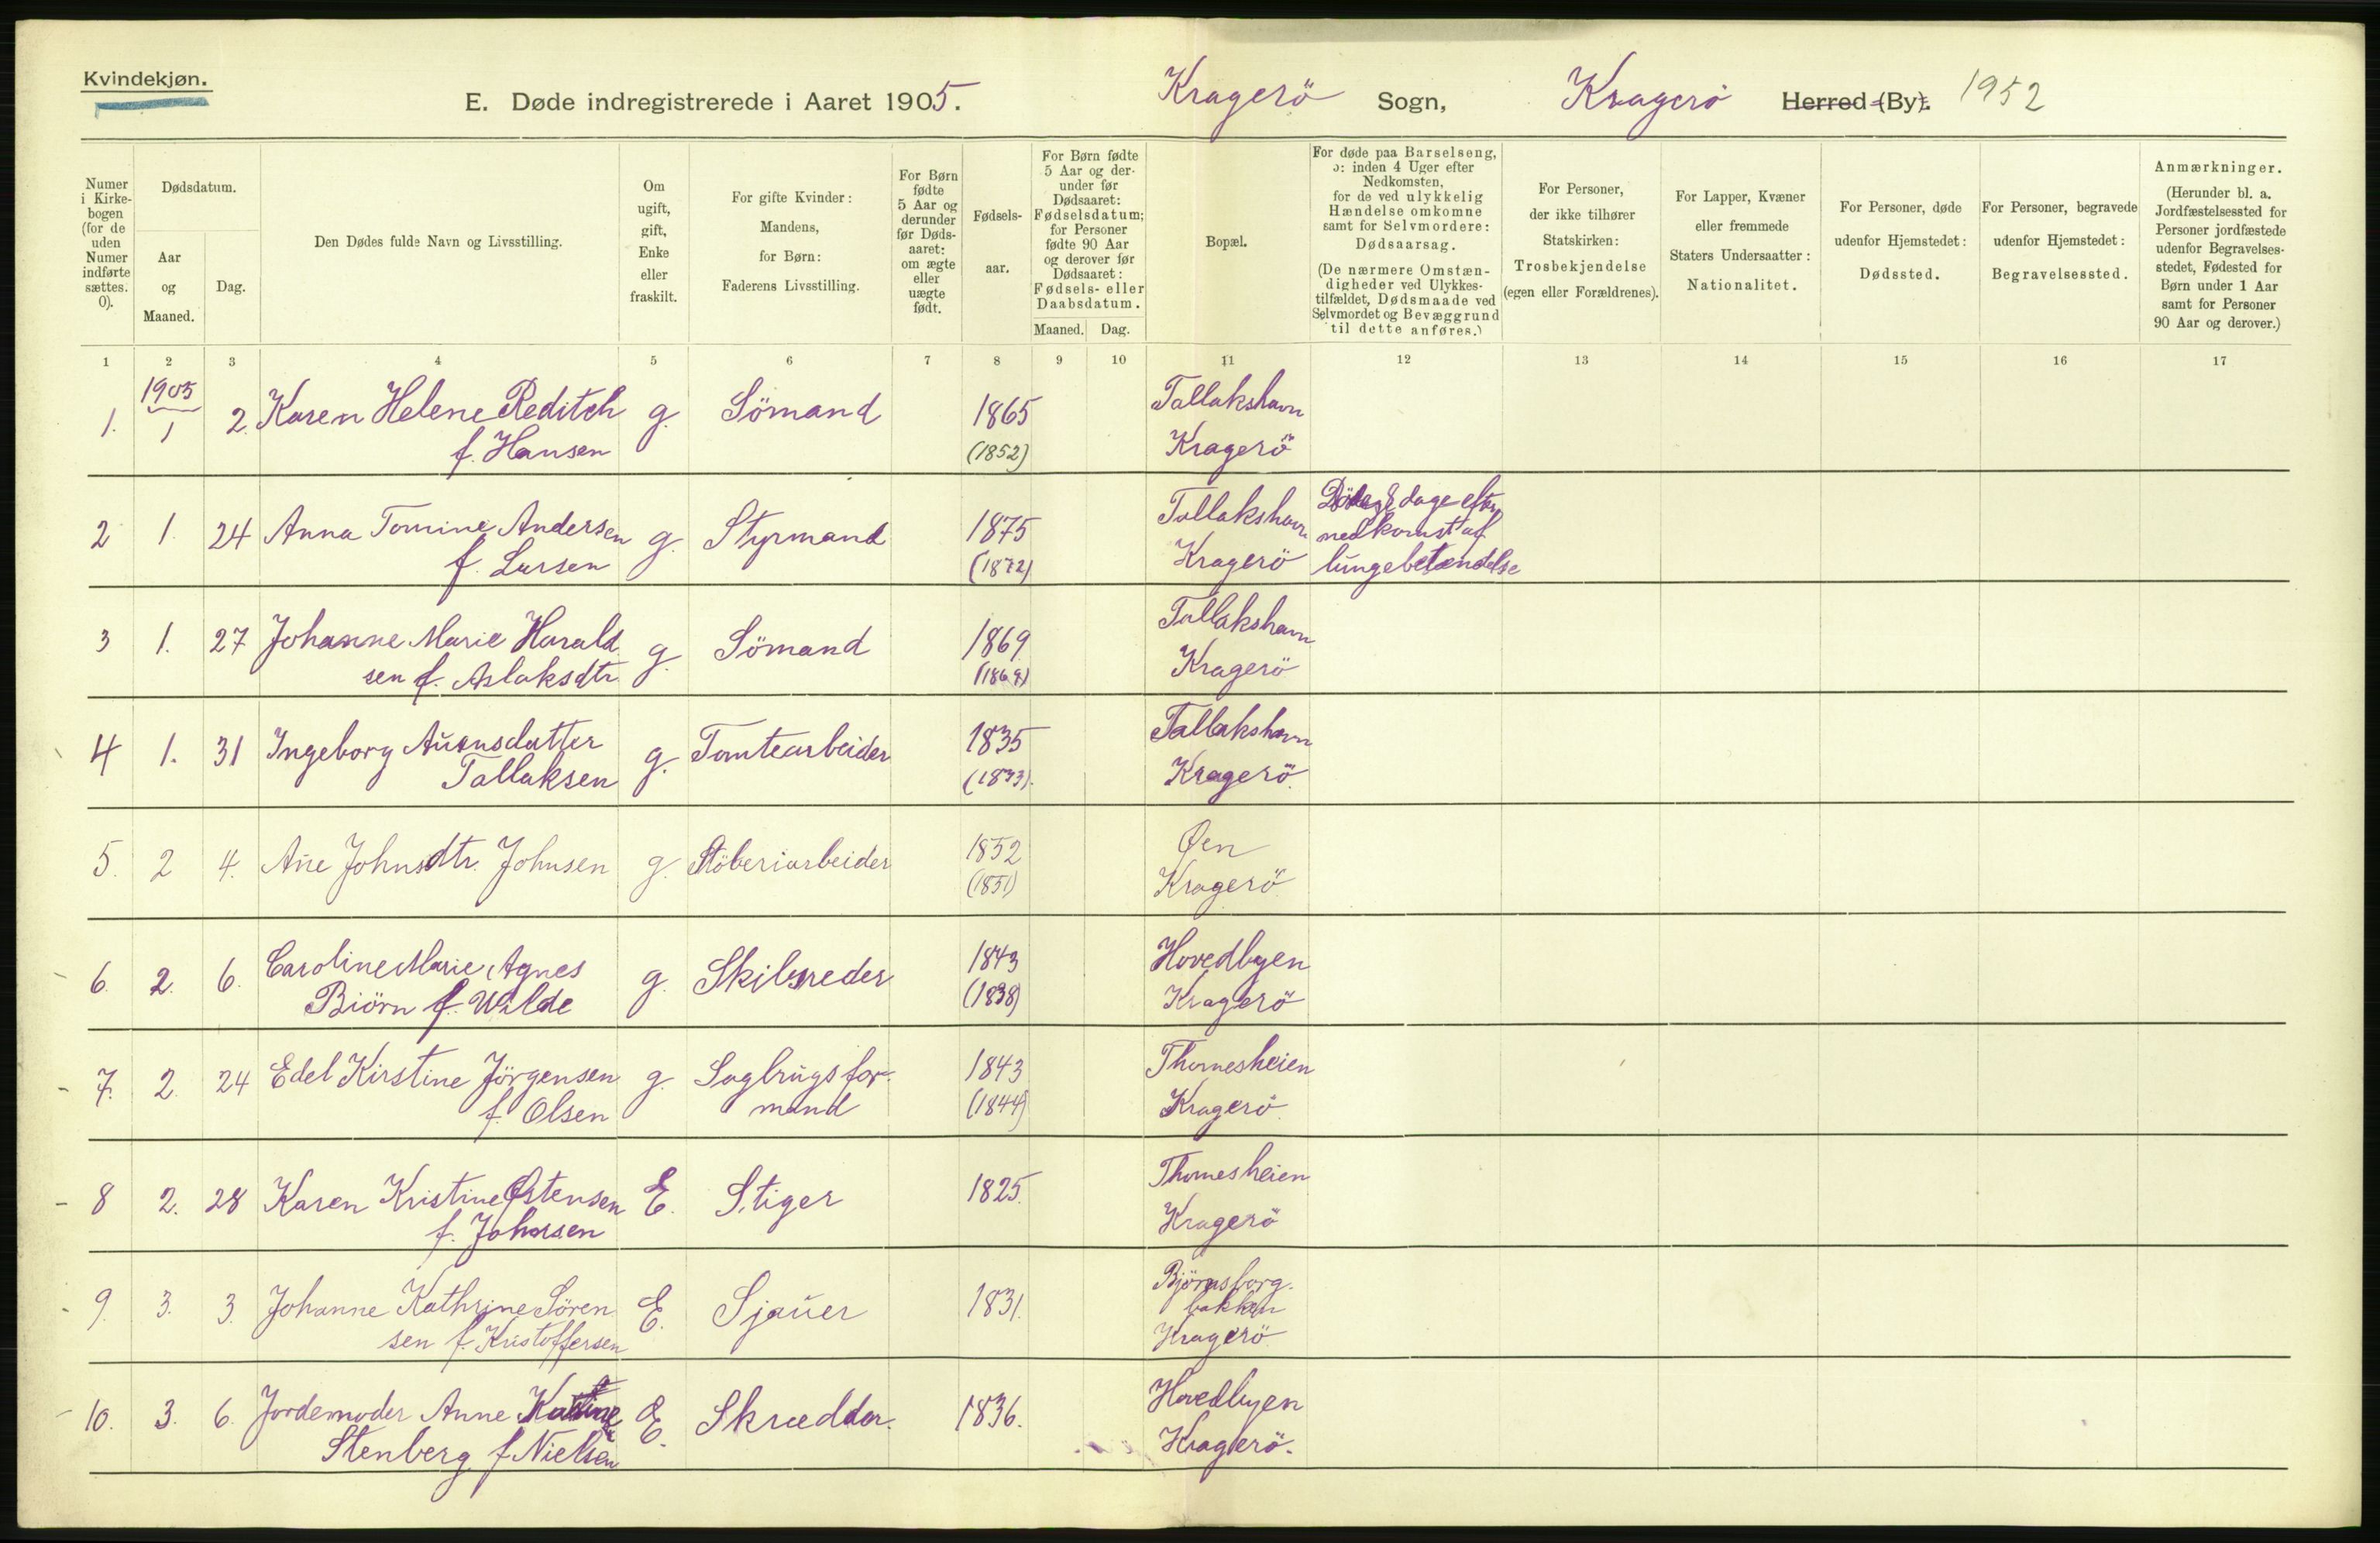 Kvindekjøn.
E. Døde indregistrerede i Aaret 1905. Kragerö Sogn, Kragerö Herred (By). 1952
Numer i Kirkebogen (for de uden Numer indførte sættes. 0).
Dødsdatum.
Aar og Maaned.
Dag.
Den Dødes fulde Navn og Livsstilling.
Om ugift, gift, Enke eller fraskilt.
For gifte Kvinder: Mandens, for Børn: Faderens Livsstilling.
For Børn fødte 5 Aar og derunder før Dødsaaret: om ægte eller uægte født.
Fødselsaar.
For Børn fødte 5 Aar og derunder før Dødsaaret: Fødselsdatum; for Personer fødte 90 Aar og derover før Dødsaaret: Fødsels- eller Daabsdatum.
Maaned. Dag.
Bopæl.
For døde paa Barselseng, ɔ: inden 4 Uger efter Nedkomsten, for de ved ulykkelig Hændelse omkomne samt for Selvmordere: Dødsaarsag.
(De nærmere Omstændigheder ved Ulykkestilfældet, Dødsmaade ved Selvmordet og Bevæggrund til dette anføres.)
For Personer, der ikke tilhører Statskirken: Trosbekjendelse (egen eller Forældrenes).
For Lapper, Kvæner eller fremmede Staters Undersaatter: Nationalitet.
For Personer, døde udenfor Hjemstedet: Dødssted.
For Personer, begravede udenfor Hjemstedet: Begravelsessted.
Anmærkninger.
(Herunder bl. a. Jordfæstelsessted for Personer jordfæstede udenfor Begravelsesstedet, Fødested for Børn under 1 Aar samt for Personer 90 Aar og derover.)
1 2 3 4 5 6 7 8 9 10 11 12 13 14 15 16 17
1905
1. 1 2. Karen Helene Reditch g. Sömand 1865 Tallakshavn
f. Hansen (1852) Kragerö
2 1. 24 Anna Tomine Andersen g. Styrmand 1875 Tallakshavn Döde 8 dage efter
f. Larsen (1872) Kragerö nedkomst af
lungebetændelse
3 1. 27 Johanne Marie Harald g. Sömand 1869 Tallakshavn
sen f. Aslaksdtr. (1869) Kragerö
4 1. 31 Ingeborg Auensdatter g. Tomtearbeider 1835 Tallakshavn
Tallaksen (1833). Kragerö.
5. 2 4. Ane Johnsdtr. Johnsen g. Stöberiarbeider 1852 Øen
(1851) Kragerö
6. 2. 6. Caroline Marie Agnes g. Skibsreder 1843 Hovedbyen
Biörn f. Walde (1838) Kragerö
7. 2. 24 Edel Kirstine Jörgensen g. Sagbrugsfor- 1843 Thomesheien
f. Olsen mand (1844) Kragerö
8 2. 28 Karen Kristine Østensen E. Stiger 1825. Thomesheien
f. Johnsen Kragerö
9. 3. 3. Johanne Kathrine Sören E. Sjauer 1831. Björnsborg-
sen f. Kristoffersen bakken
Kragerö
10. 3. 6. Jordemoder Anne E. Skrædder. 1836. Hovedbyen
Stenberg f. Nielsen Kragerö.